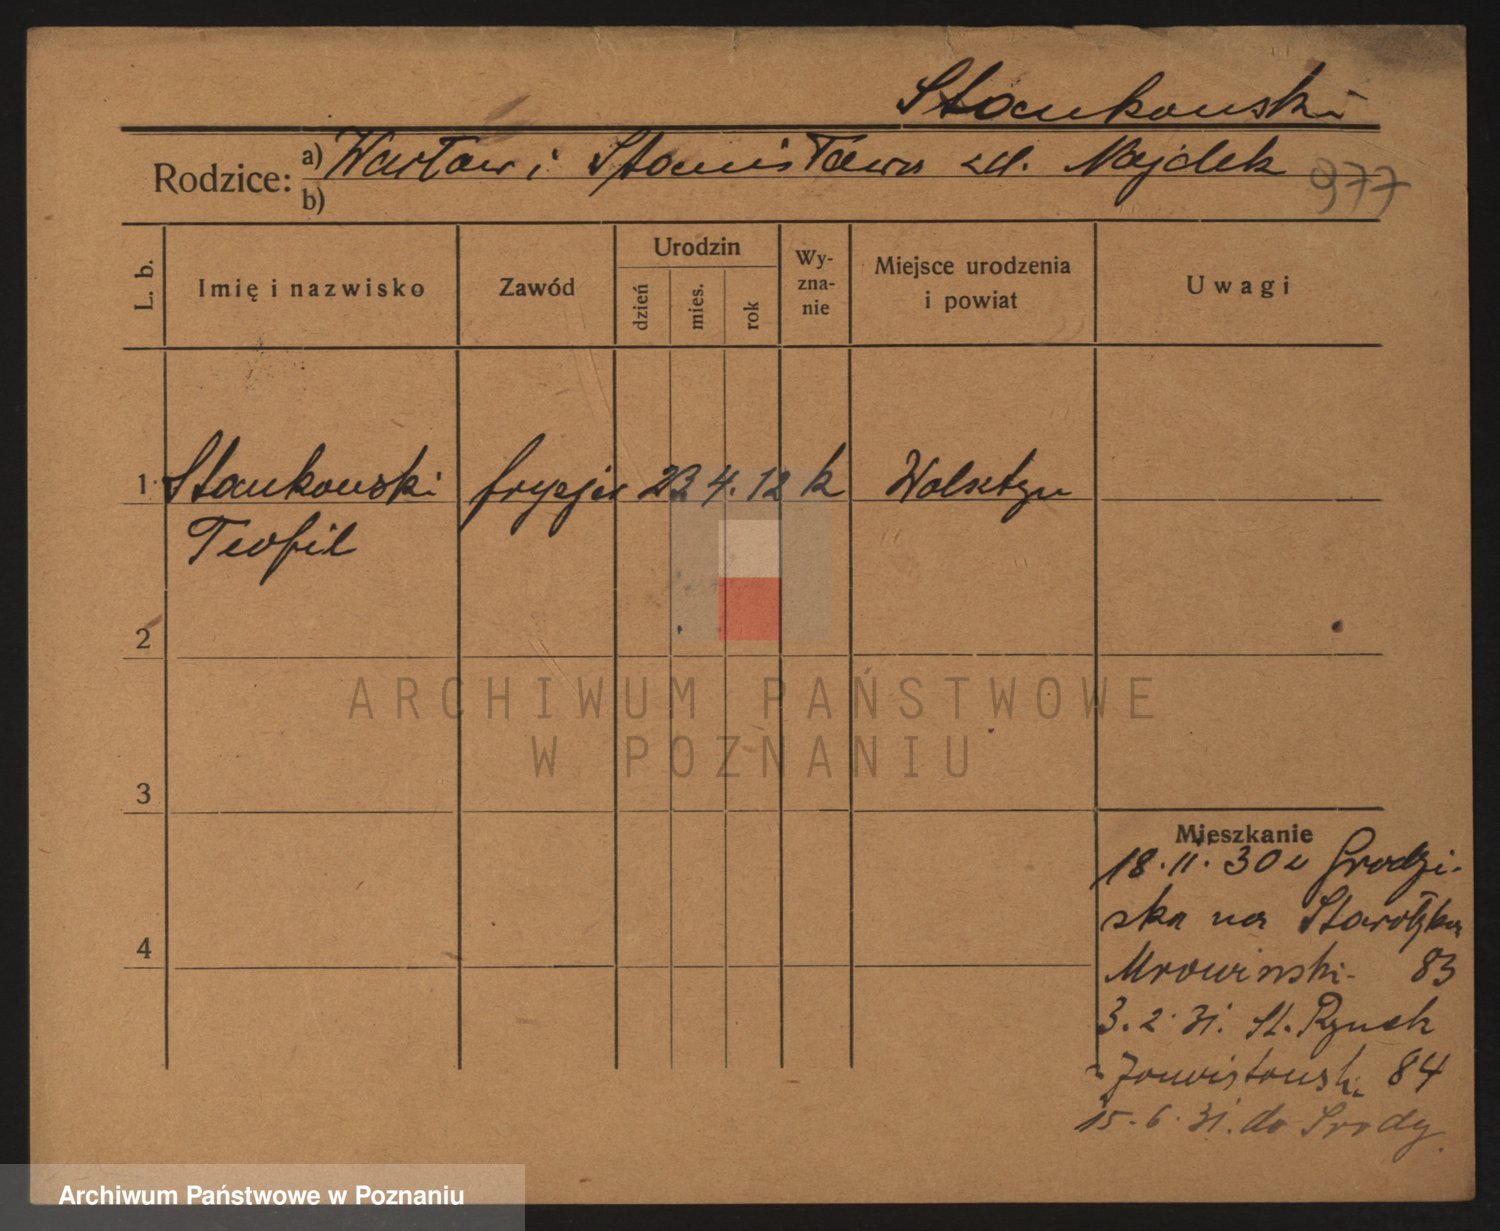 Stankowski
Rodzice: a) Wacław i Stanisława zd. Majdek
b)
977
L. b.
Imię i nazwisko
Zawód
Urodzin
dzień
mies.
rok
Wy-
zna-
nie
Miejsce urodzenia
i powiat
Uwagi
1 Stankowski fryzjer 23 4. 12 k Wolsztyn
Teofil
2
3
4
Mieszkanie
18.11.30 z Grodzi-
ska na Starołęka
Mrowinski- 83
3.2.31. St. Rynek
84
15.6.31. do Środy.
ARCHIWUM PAŃSTWOWE
W POZNANIU
Archiwum Państwowe w Poznaniu